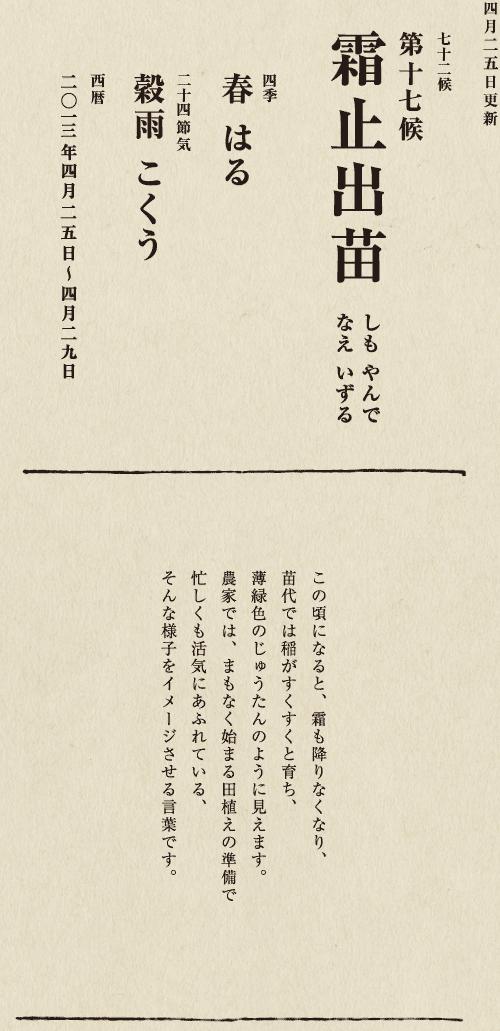 四月二五日更新
七十二候
第十七候
霜止出苗
しも やんで
なえ いずる
四季
春 はる
二十四節気
穀雨 こくう
西暦
二〇一三年四月二五日〜四月二九日
この頃になると、霜も降りなくなり、
苗代では稲がすくすくと育ち、
薄緑色のじゅうたんのように見えます。
農家では、まもなく始まる田植えの準備で
忙しくも活気にあふれている、
そんな様子をイメージさせる言葉です。